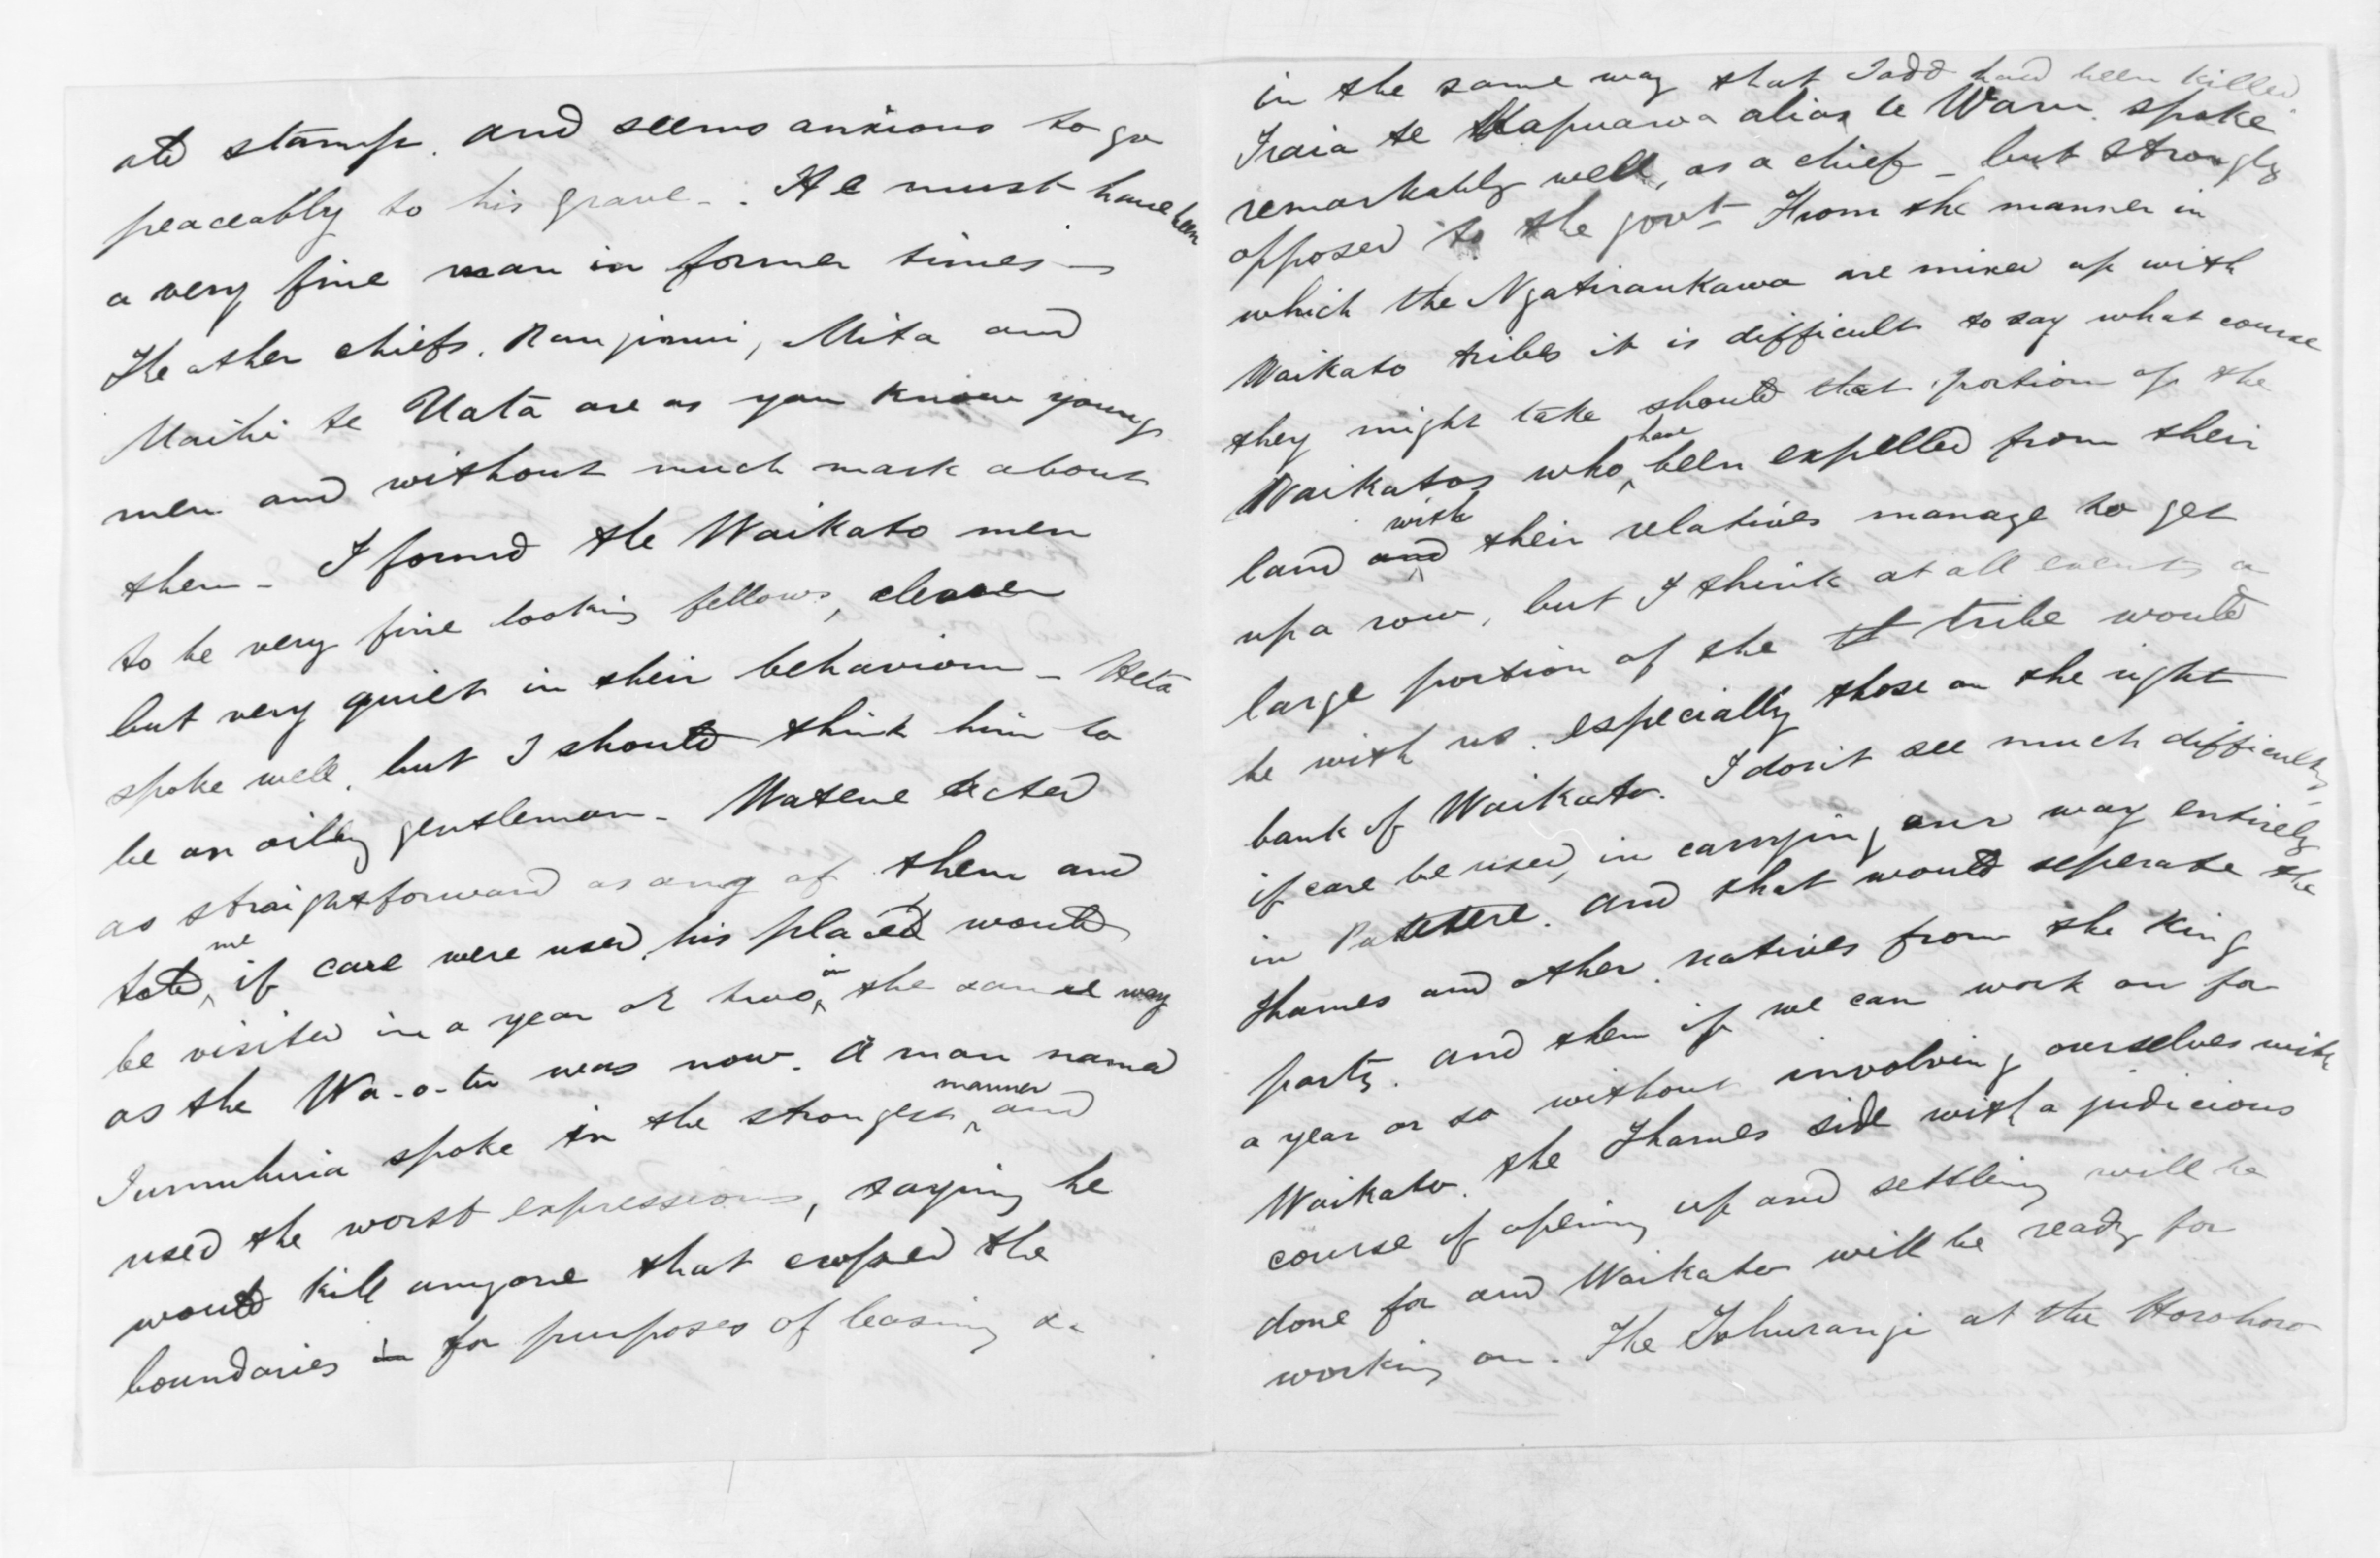 old stamp. and seems anxious to go
peaceably to his grave - . He must have been
a very fine man in former times -
The other chiefs. Rangimui, Mita and
Maihi te Uata are as you know young
men and without much mark about
them - I found the Waikato men
to be very fine looking fellows, clever
but very quiet in their behaviour - Heta
spoke well, but I should think him to
be an oilly gentleman - Watene acted
as straightforward as any of them and
told me if care were used, his place would
be visited in a year or two in the same way
as the Wa-o-tu was now. A man named
spoke in the strongest manner and
used the worst expressions, saying he
would kill anyone that crossed the
boundaries in for purposes of leasing &c
in the same way that Todd had been killed.
Iraia te alias te Waru. spoke
remarkably well, as a chief - but strongly
opposed to the govt - From the manner in
which the Ngatiraukawa are mixed up with
Waikato tribes it is difficult to say what course
they might take should that portion of the
Waikatos who have been expelled from their
land and with their relatives manage to get
up a row, but I think at all events a
large portion of the tribe would
be with us. especially those on the right
bank of Waikato. I don't see much difficulty,
if care be used, in carrying our way entirely
in Patetere. and that would seperate the
Thames and other natives from the King
party. and then if we can work on for
a year or so without involving ourselves with
Waikato. the Thames side with a judicious
course of opening up and settling will be
done for and Waikato will be ready for
working on - The Tuhurangi at the Horohoro